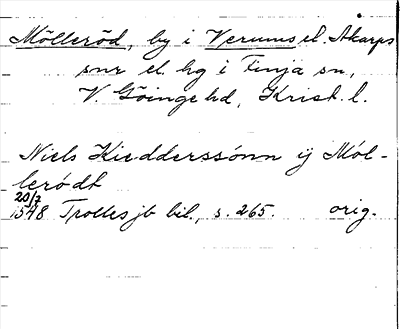 Mölleröd, by i Verums el. Akarps
snr el. hg i Finja sn,
V. Göinge hd, Krist. l.
Niels Kiedderssónn ÿ Mól-
leródt
20/7
1548 Trolles jb bil., s. 265. orig.